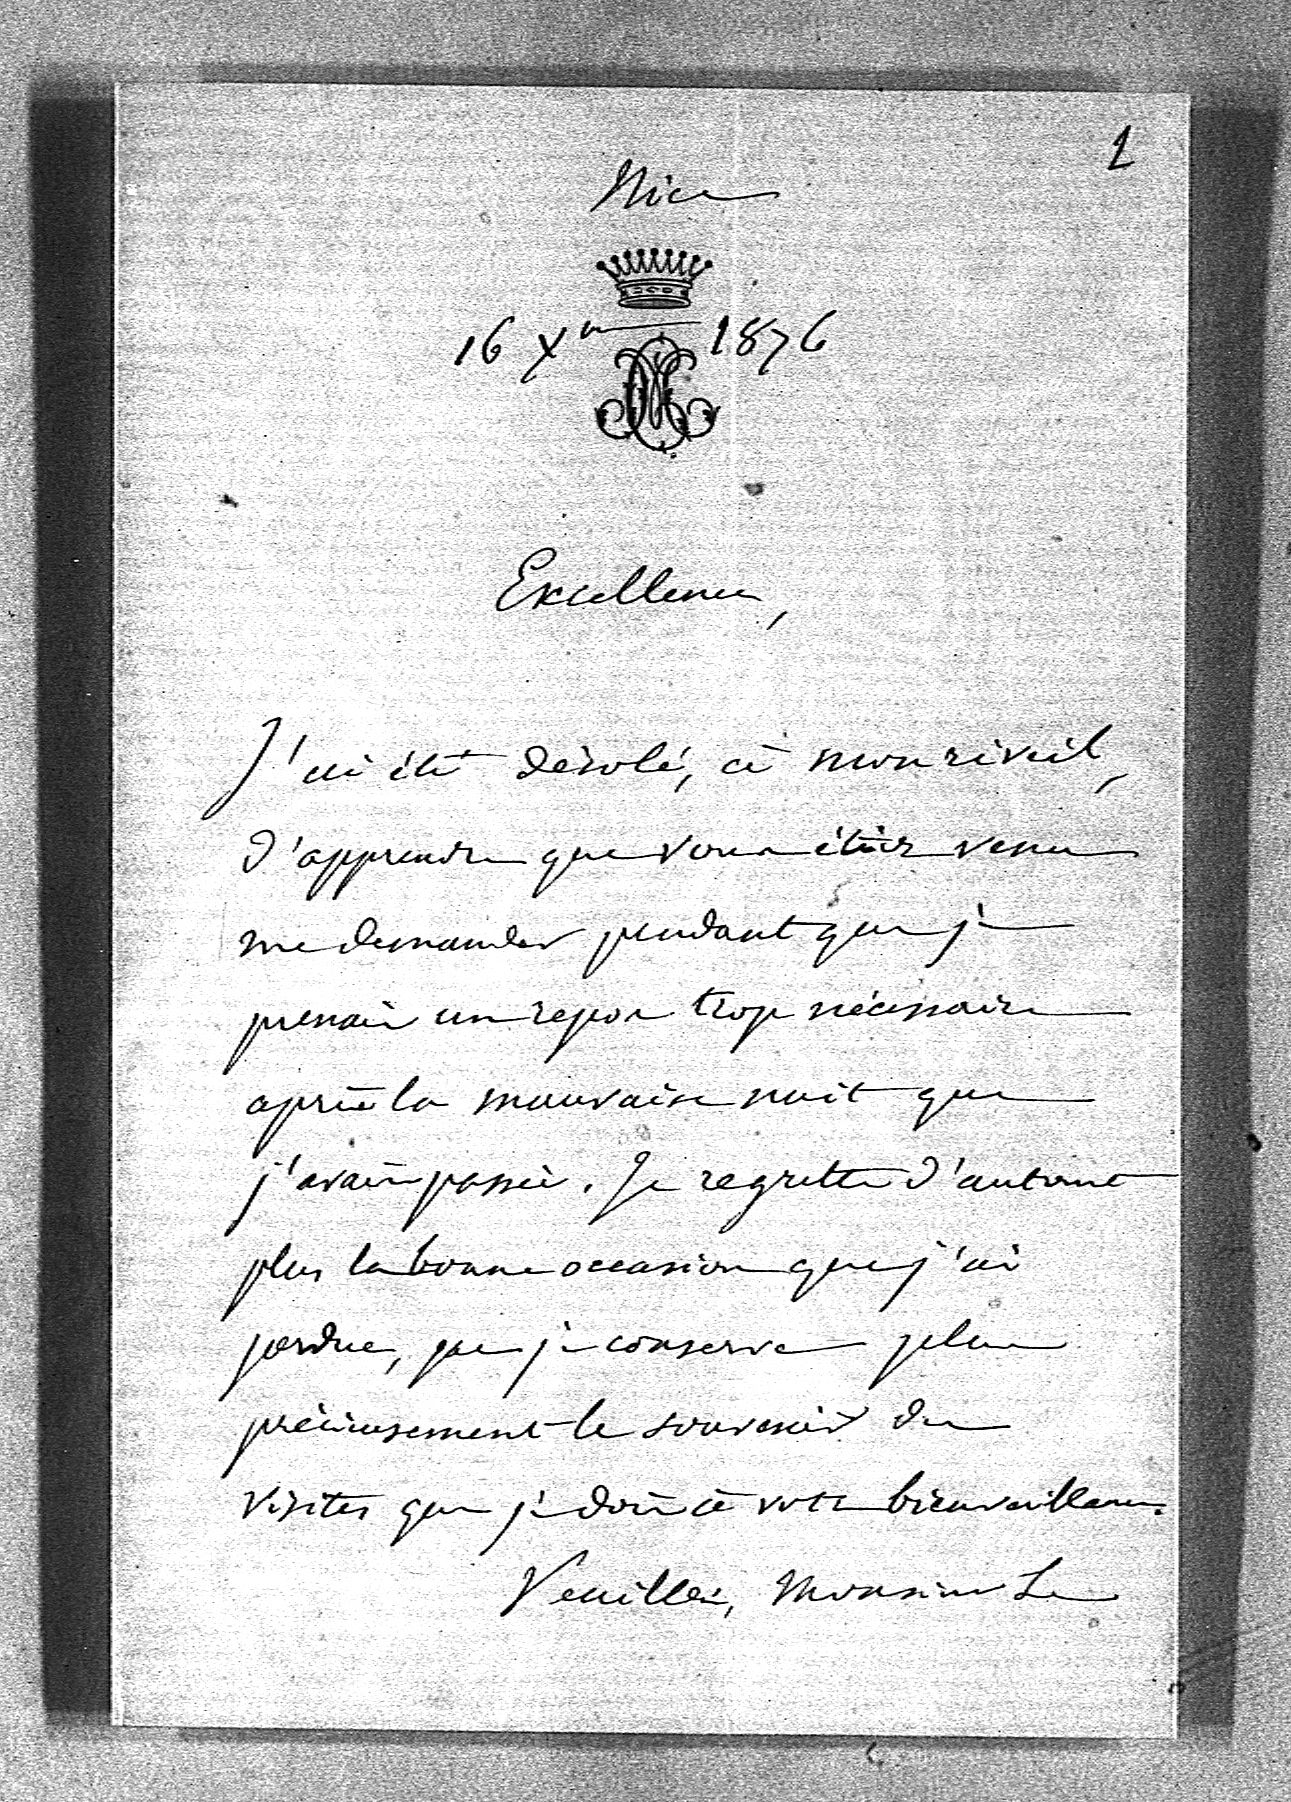 1
Nice
16 Xre 1876
Excellence,
J'ai été désolé, à mon réveil,
d'apprendre que vous étiez venu
me demander pendant que je
prenais un repos trop nécessaire
après la mauvaise nuit que
j'avais passée. Je regrette d'autant
plus la bonne occasion que j'ai
perdue, que je conserve plus
précieusement le souvenir des
visites que je dois à votre bienveillance.
Veuillez, Monsieur Le